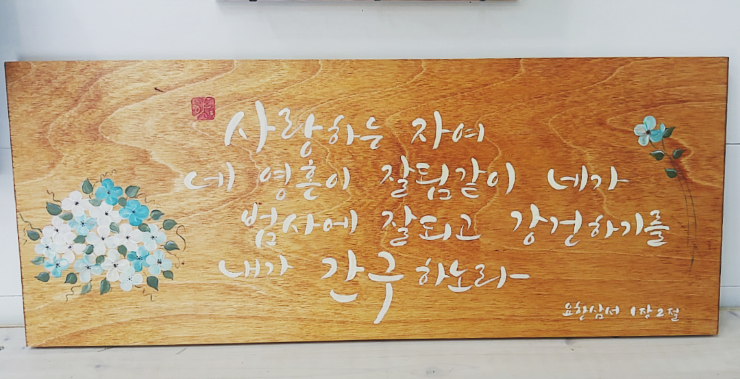 사랑하는 자여
네 영혼이 잘됨같이 네가
범사에 잘되고 강건하기를
내가 간구하노라
요한삼서 1장2절